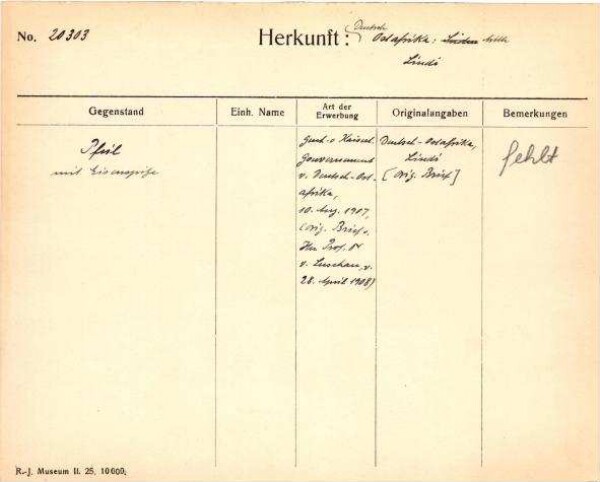 No. 20303
Herkunft: Deutsch
Ostafrika:
Lindi
Gegenstand
Einh. Name
Art der
Erwerbung
Originalangaben
Bemerkungen
Pfeil
mit Eisenspitze
Gesch. v. Kaiserl.
Gouvernement
v. Deutsch-Ost-
afrika,
10. Aug. 1907,
(Orig. Brief v.
Hrn Prof. Dr
v. Luschan, v.
28. April 1908)
Deutsch-Ostafrika,
Lindi
[Orig. Brief]
fehlt
R.-J. Museum II. 25. 10000.